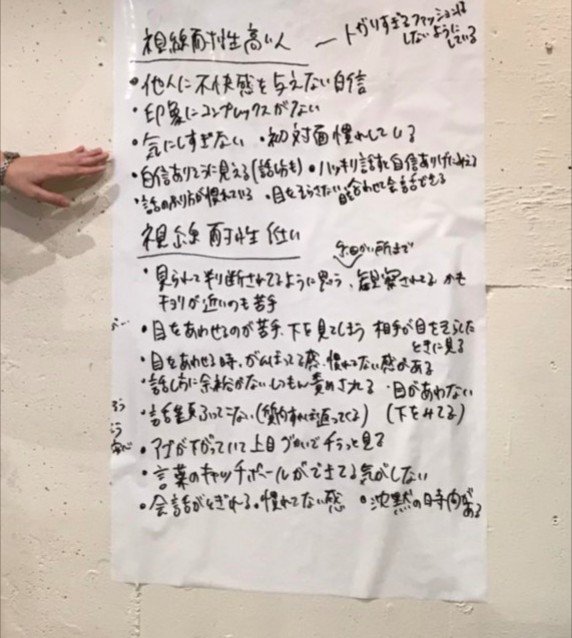 視線耐性高い人 〜トガりすぎるファッションは
しないように
している
・他人に不快感を与えない自信
・印象にコンプレックスがない
・気にしすぎない ・初対面慣れしている
・自信ありそうに見える(話し方も) ・ハッキリ話す自信ありげにみえる
・話のふり方が慣れている ・目をそらさない 目合わせて会話できる
視線耐性低い
細かい所まで
・見られて判断されてるように思う、観察されてるかも
キョリが近いのも苦手
・目をあわせるのが苦手、下を見てしまう 相手が目をそらした
ときに見る
・目をあわせる時、がんばってる感、慣れてない感がある
・話し方に余裕がない しつもん責めされる ・目があわない
・話題ふってこない(質問すれば返ってくる) (下をみてる)
・アゴが下がっていて上目づかいでチラっと見る
・言葉のキャッチボールができてる気がしない
・会話がとぎれる・慣れてない感 ・沈黙の時間が
ある